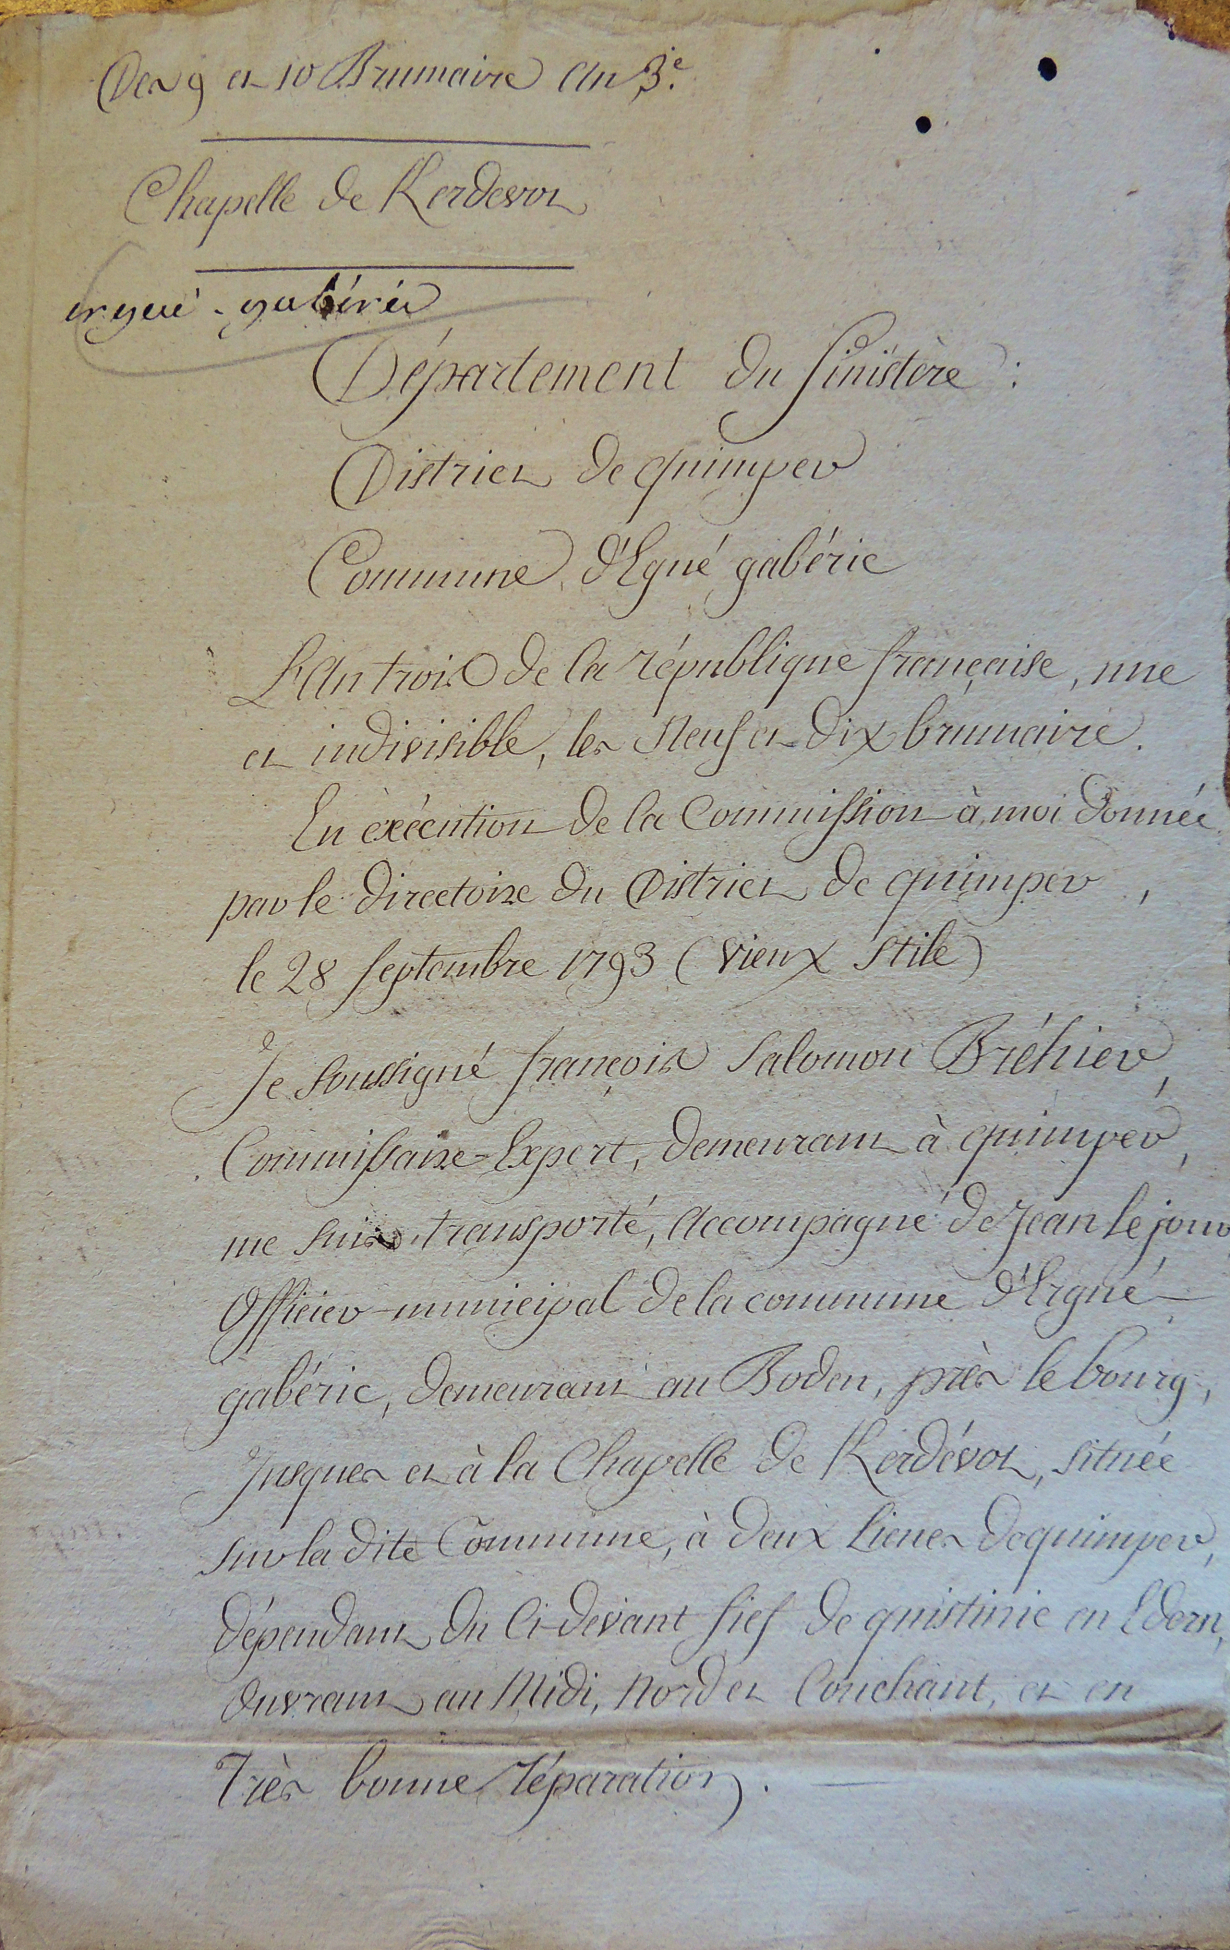 Des 9 et 10 Brumaire An 3.e
Chapelle de Kerdevot
ergué-gabéric
Département du finistère :
District de quimper
Commune d'Ergué gabéric
L'An trois de la république française, une
et indivisible, les Neuf et dix brumaire.
En éxécution de la Commission à moi donnée
par le directoire du District de quimper,
le 28 septembre 1793 (vieux stile)
Je soussigné françois Salomon Bréhier,
Commissaire-Expert, demeurant à quimper,
me suis transporté, accompagné de Jean le jour
Officier municipal de la commune d'Ergué
gabéric, demeurant au Boden, près le bourg,
Jusques et à la Chapelle de Kerdévot, située
sur la dite Commune, à deux Lieues de quimper,
dépendant du Ci-devant fief de quistinic en Edern,
Ouvrant au Midi, Nord et Couchant, et en
Très bonne réparation.